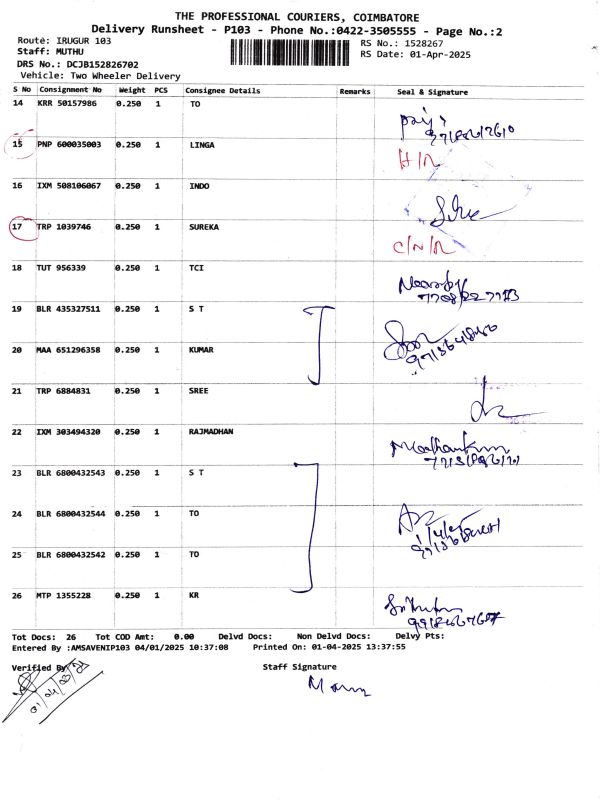 THE PROFESSIONAL COURIERS, COIMBATORE
Delivery Runsheet - P103 - Phone No.:0422-3505555 - Page No.:2
Route: IRUGUR 103
RS No.: 1528267
Staff: MUTHU
RS Date: 01-Apr-2025
DRS No.: DCJB152826702
Vehicle: Two Wheeler Delivery
S No Consignment No Weight PCS Consignee Details Remarks Seal & Signature
14 KRR 50157986 0.250 1 TO
15 PNP 600035003 0.250 1 LINGA
H/R
16 IXM 508106067 0.250 1 INDO
17 TRP 1039746 0.250 1 SUREKA
C/N/R
18 TUT 956339 0.250 1 TCI
19 BLR 435327511 0.250 1 S T
20 MAA 651296358 0.250 1 KUMAR
21 TRP 6884831 0.250 1 SREE
22 IXM 303494320 0.250 1 RAJMADHAN
23 BLR 6800432543 0.250 1 S T
24 BLR 6800432544 0.250 1 TO
25 BLR 6800432542 0.250 1 TO
26 MTP 1355228 0.250 1 KR
Tot Docs: 26 Tot COD Amt: 0.00 Delvd Docs: Non Delvd Docs: Delvy Pts:
Entered By :AMSAVENIP103 04/01/2025 10:37:08 Printed On: 01-04-2025 13:37:55
Verified By
Staff Signature